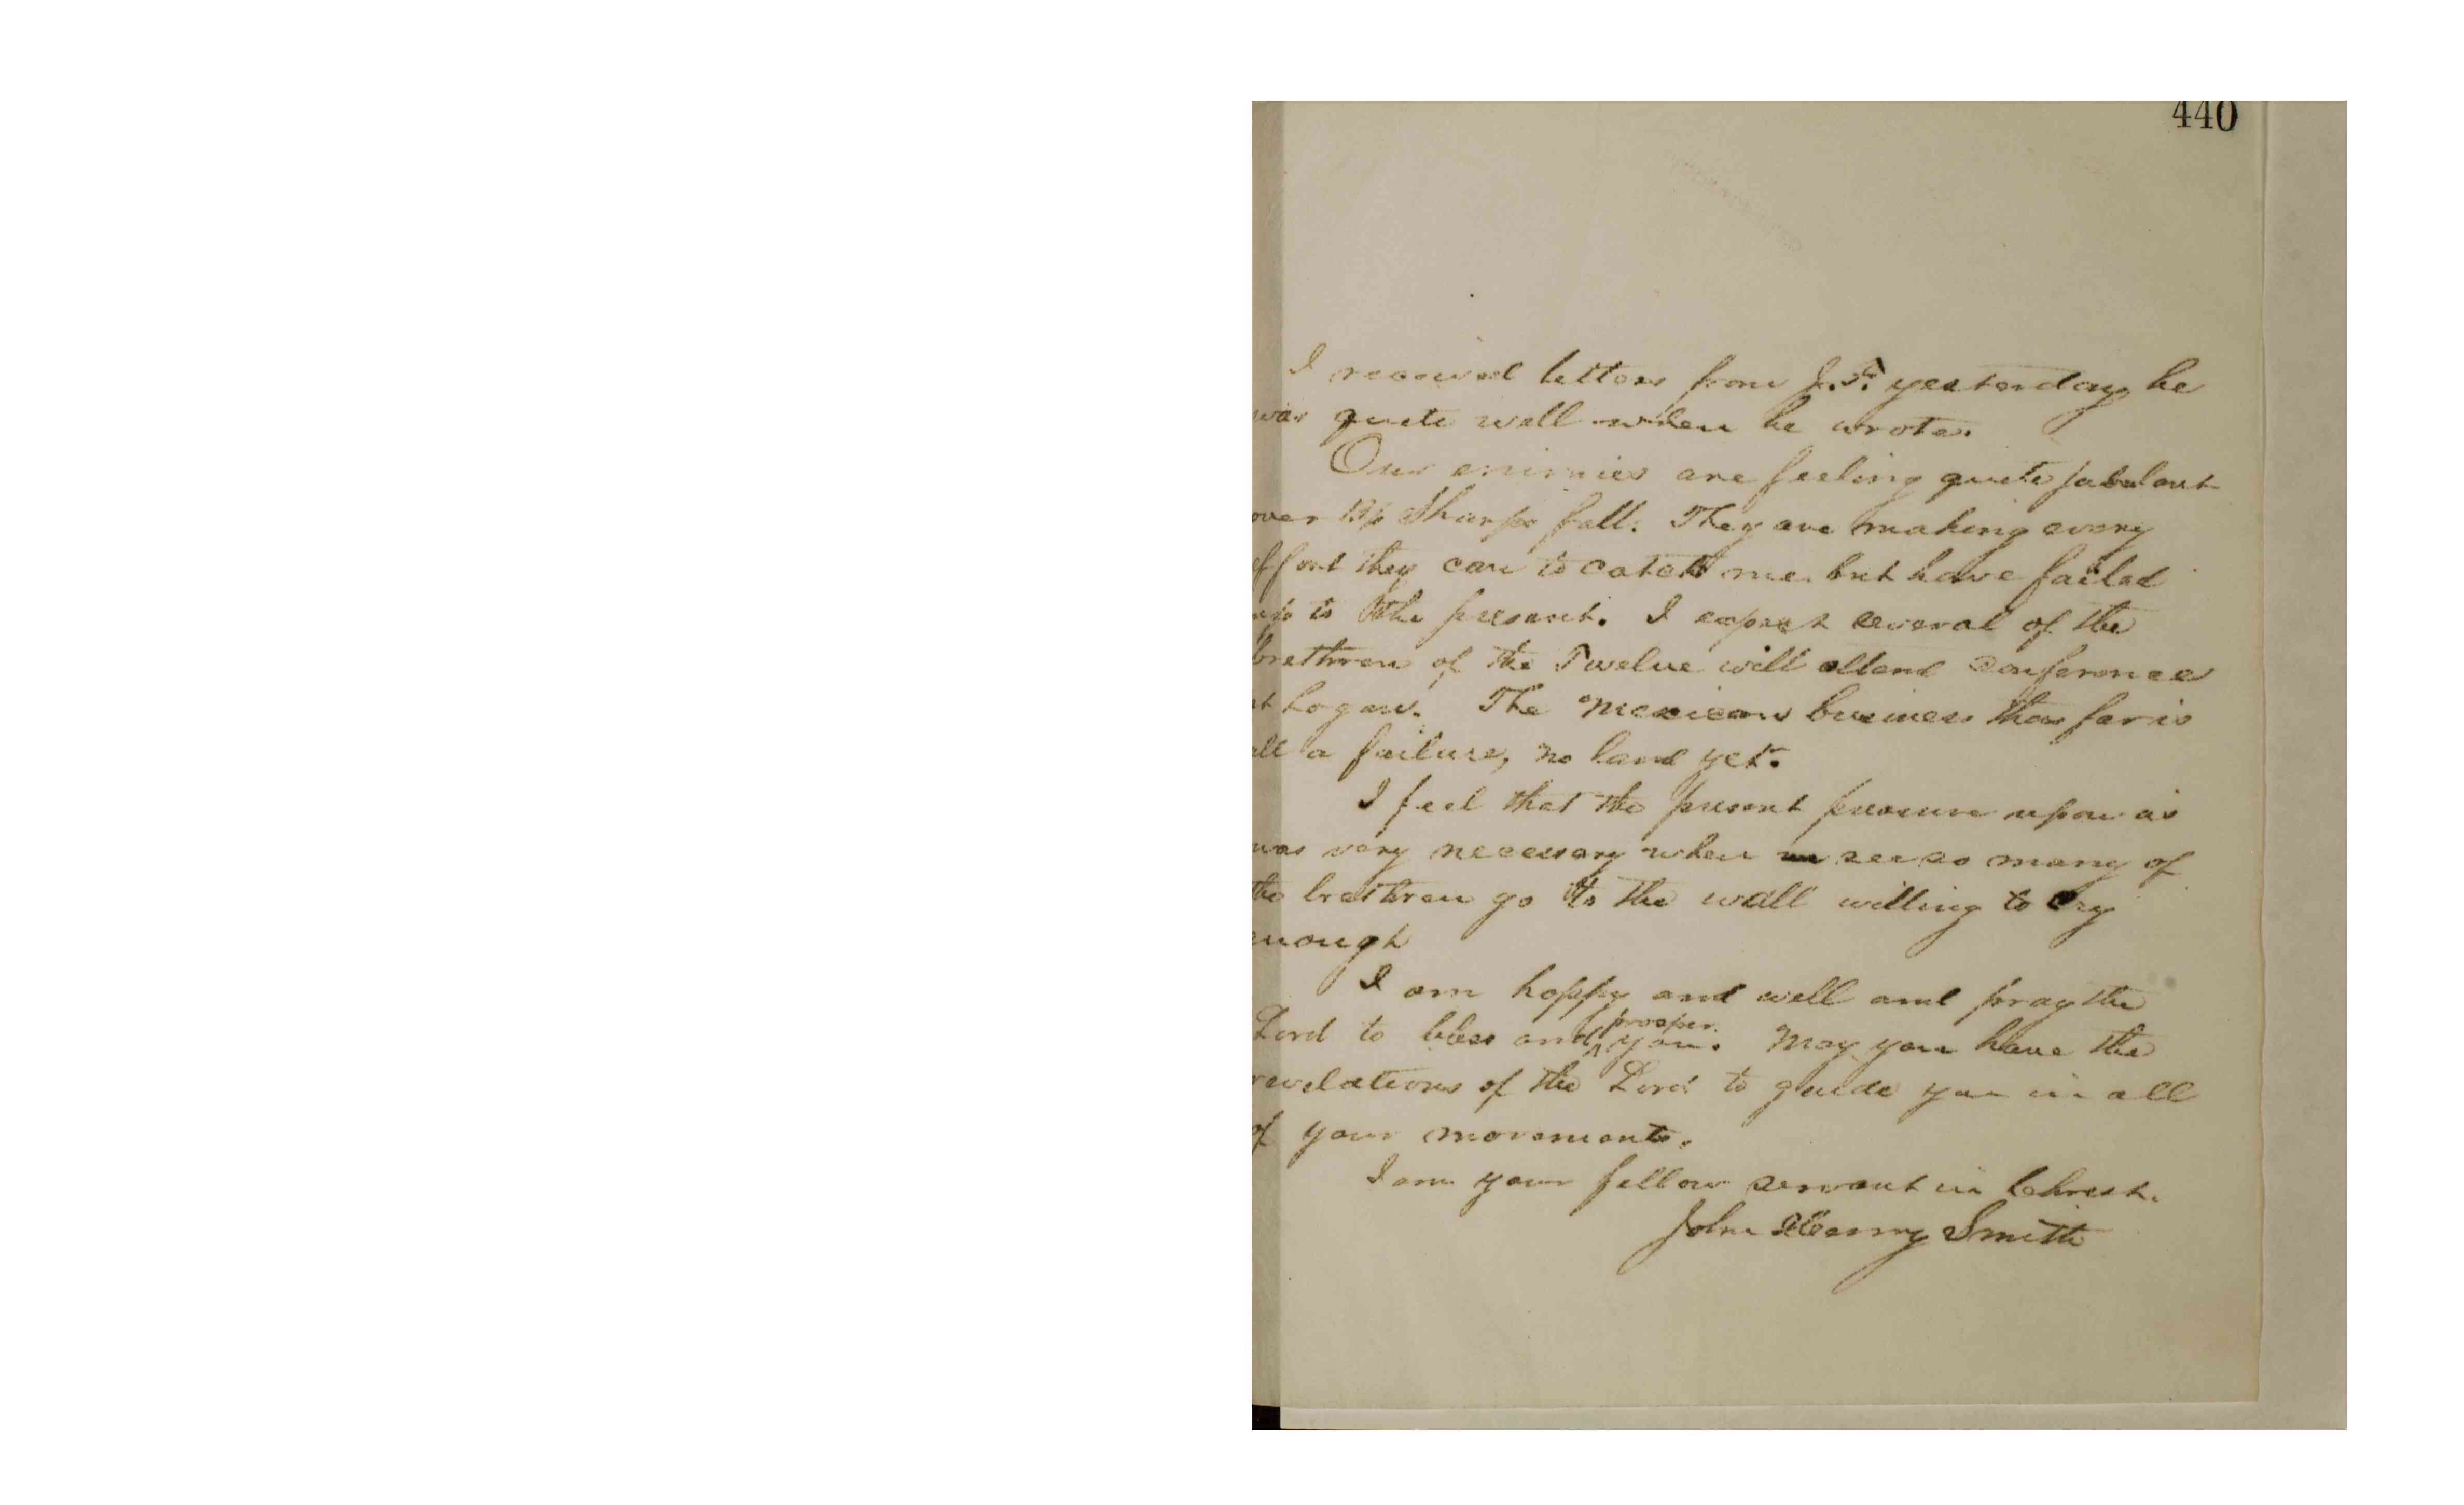 440
I received letters from J.F. yesterday he
was quite well when he wrote.
Our enimies are feeling quite jubulant
over Bp Sharps fall. They are making every
effort they can to catch me. but have failed
up to the present. I expect several of the
brethren of the Twelve will attend Conference
at Logan. The Mexican business thus far is
all a failure, no land yet.
I feel that the present pressure upon us
was very necessary when we see so many of
the brethren go to the wall willing to cry
enough
I am happy and well and pray the
Lord to bless and prosper you. May you have the
revelations of the Lord to guide you in all
of your movements.
I am your fellow servant in Christ.
John Henry Smith